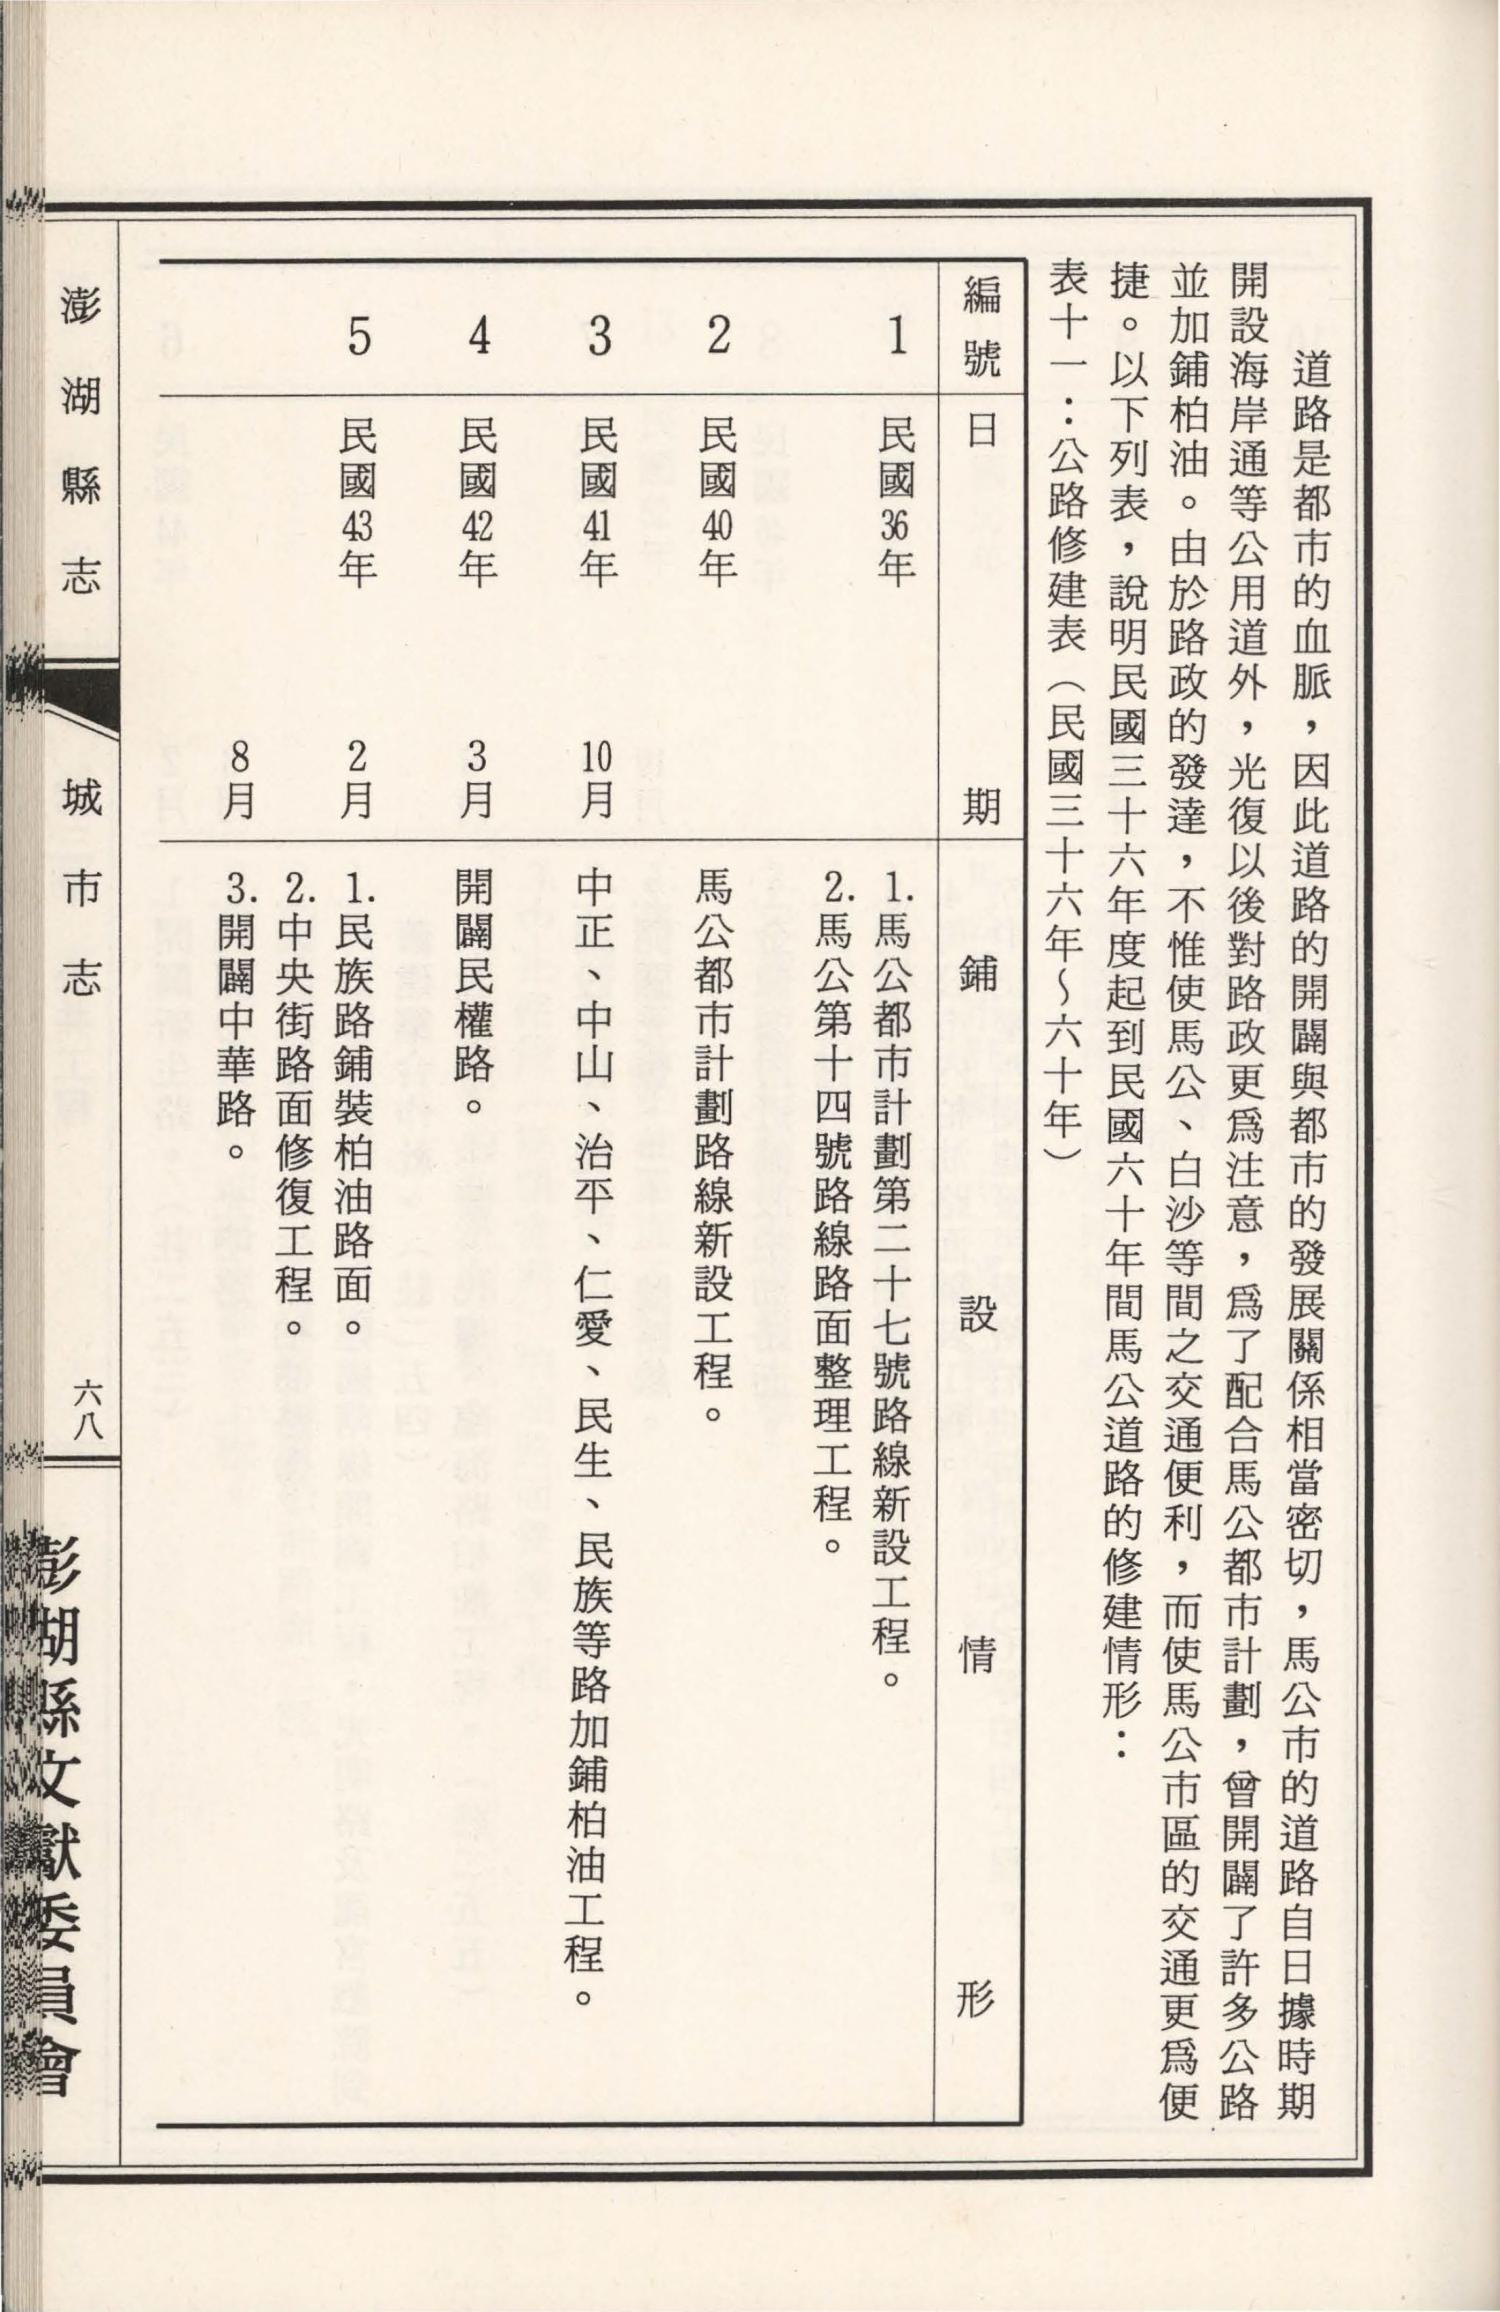 道路是都市的血脈，因此道路的開闢與都市的發展關係相當密切，馬公市的道路自日據時期
開設海岸通等公用道外，光復以後對路政更為注意，為了配合馬公都市計劃，曾開闢了許多公路
並加鋪柏油。由於路政的發達，不惟使馬公、白沙等間之交通便利，而使馬公市區的交通更為便
捷。以下列表，說明民國三十六年度起到民國六十年間馬公道路的修建情形：
表十一：公路修建表（民國三十六年～六十年）
編號 日期 鋪設情形
1 民國36年 1.馬公都市計劃第二十七號路線新設工程。
2.馬公第十四號路線路面整理工程。
2 民國40年 馬公都市計劃路線新設工程。
3 民國41年 10月 中正、中山、治平、仁愛、民生、民族等路加鋪柏油工程。
4 民國42年 3月 開闢民權路。
5 民國43年 2月 1.民族路鋪裝柏油路面。
2.中央街路面修復工程。
8月 3.開闢中華路。
澎湖縣志 城市志 六八 澎湖縣文獻委員會